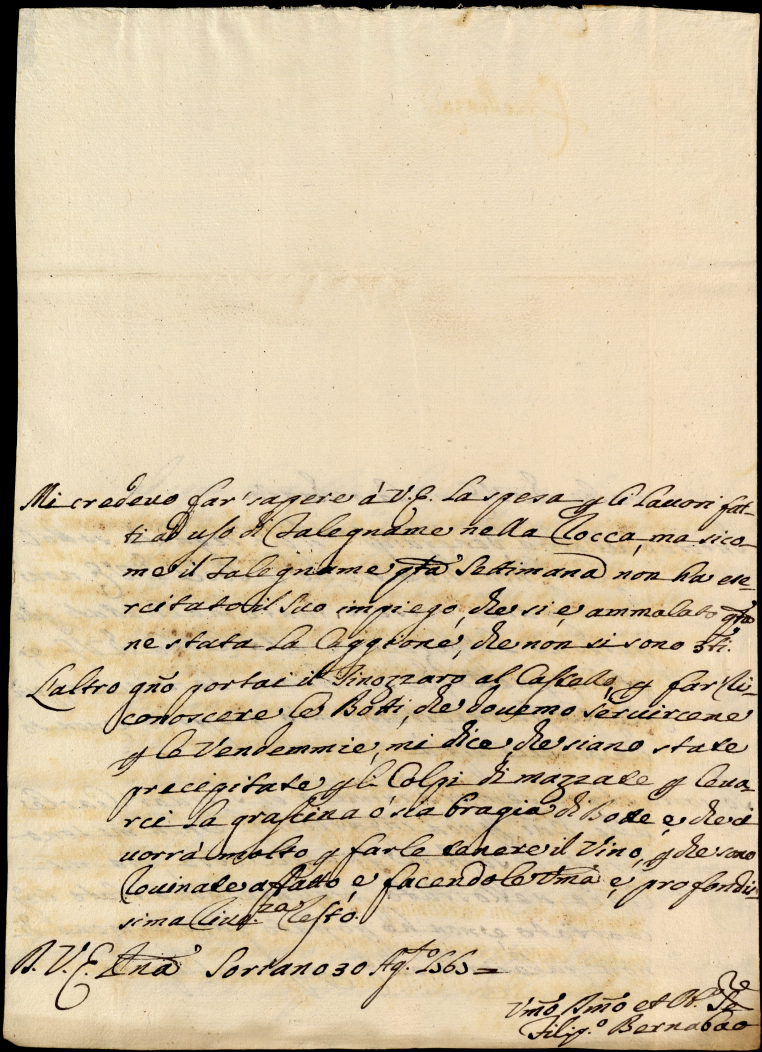 Mi credevo far sapere à V.E. la spesa p li lavori fat-
ti ad uso di Falegname nella Rocca, ma sico-
me il Falegname qta Settimana non ha ese-
rcitato il suo impiego, che si è ammalato qta
ne stata la Caggione, che non si sono
L'altro gno portai il Tinozzaro al Castello, p farli
conoscere le Botti, che dovemo servircene
p le Vendemmie, mi dice, che siano state
precipitate p li Colpi di mazzate p leva-
rci la grascina ò sia bragia di Botte, e che ci
vorrà molto p farle tenere il Vino, p che sono
rovinate affatto, e facendole Uma, e profondis-
sima Rivza Resto.
D. V. E. Soriano 30 Agto
Umo Dmo et
Filipo Bernabao